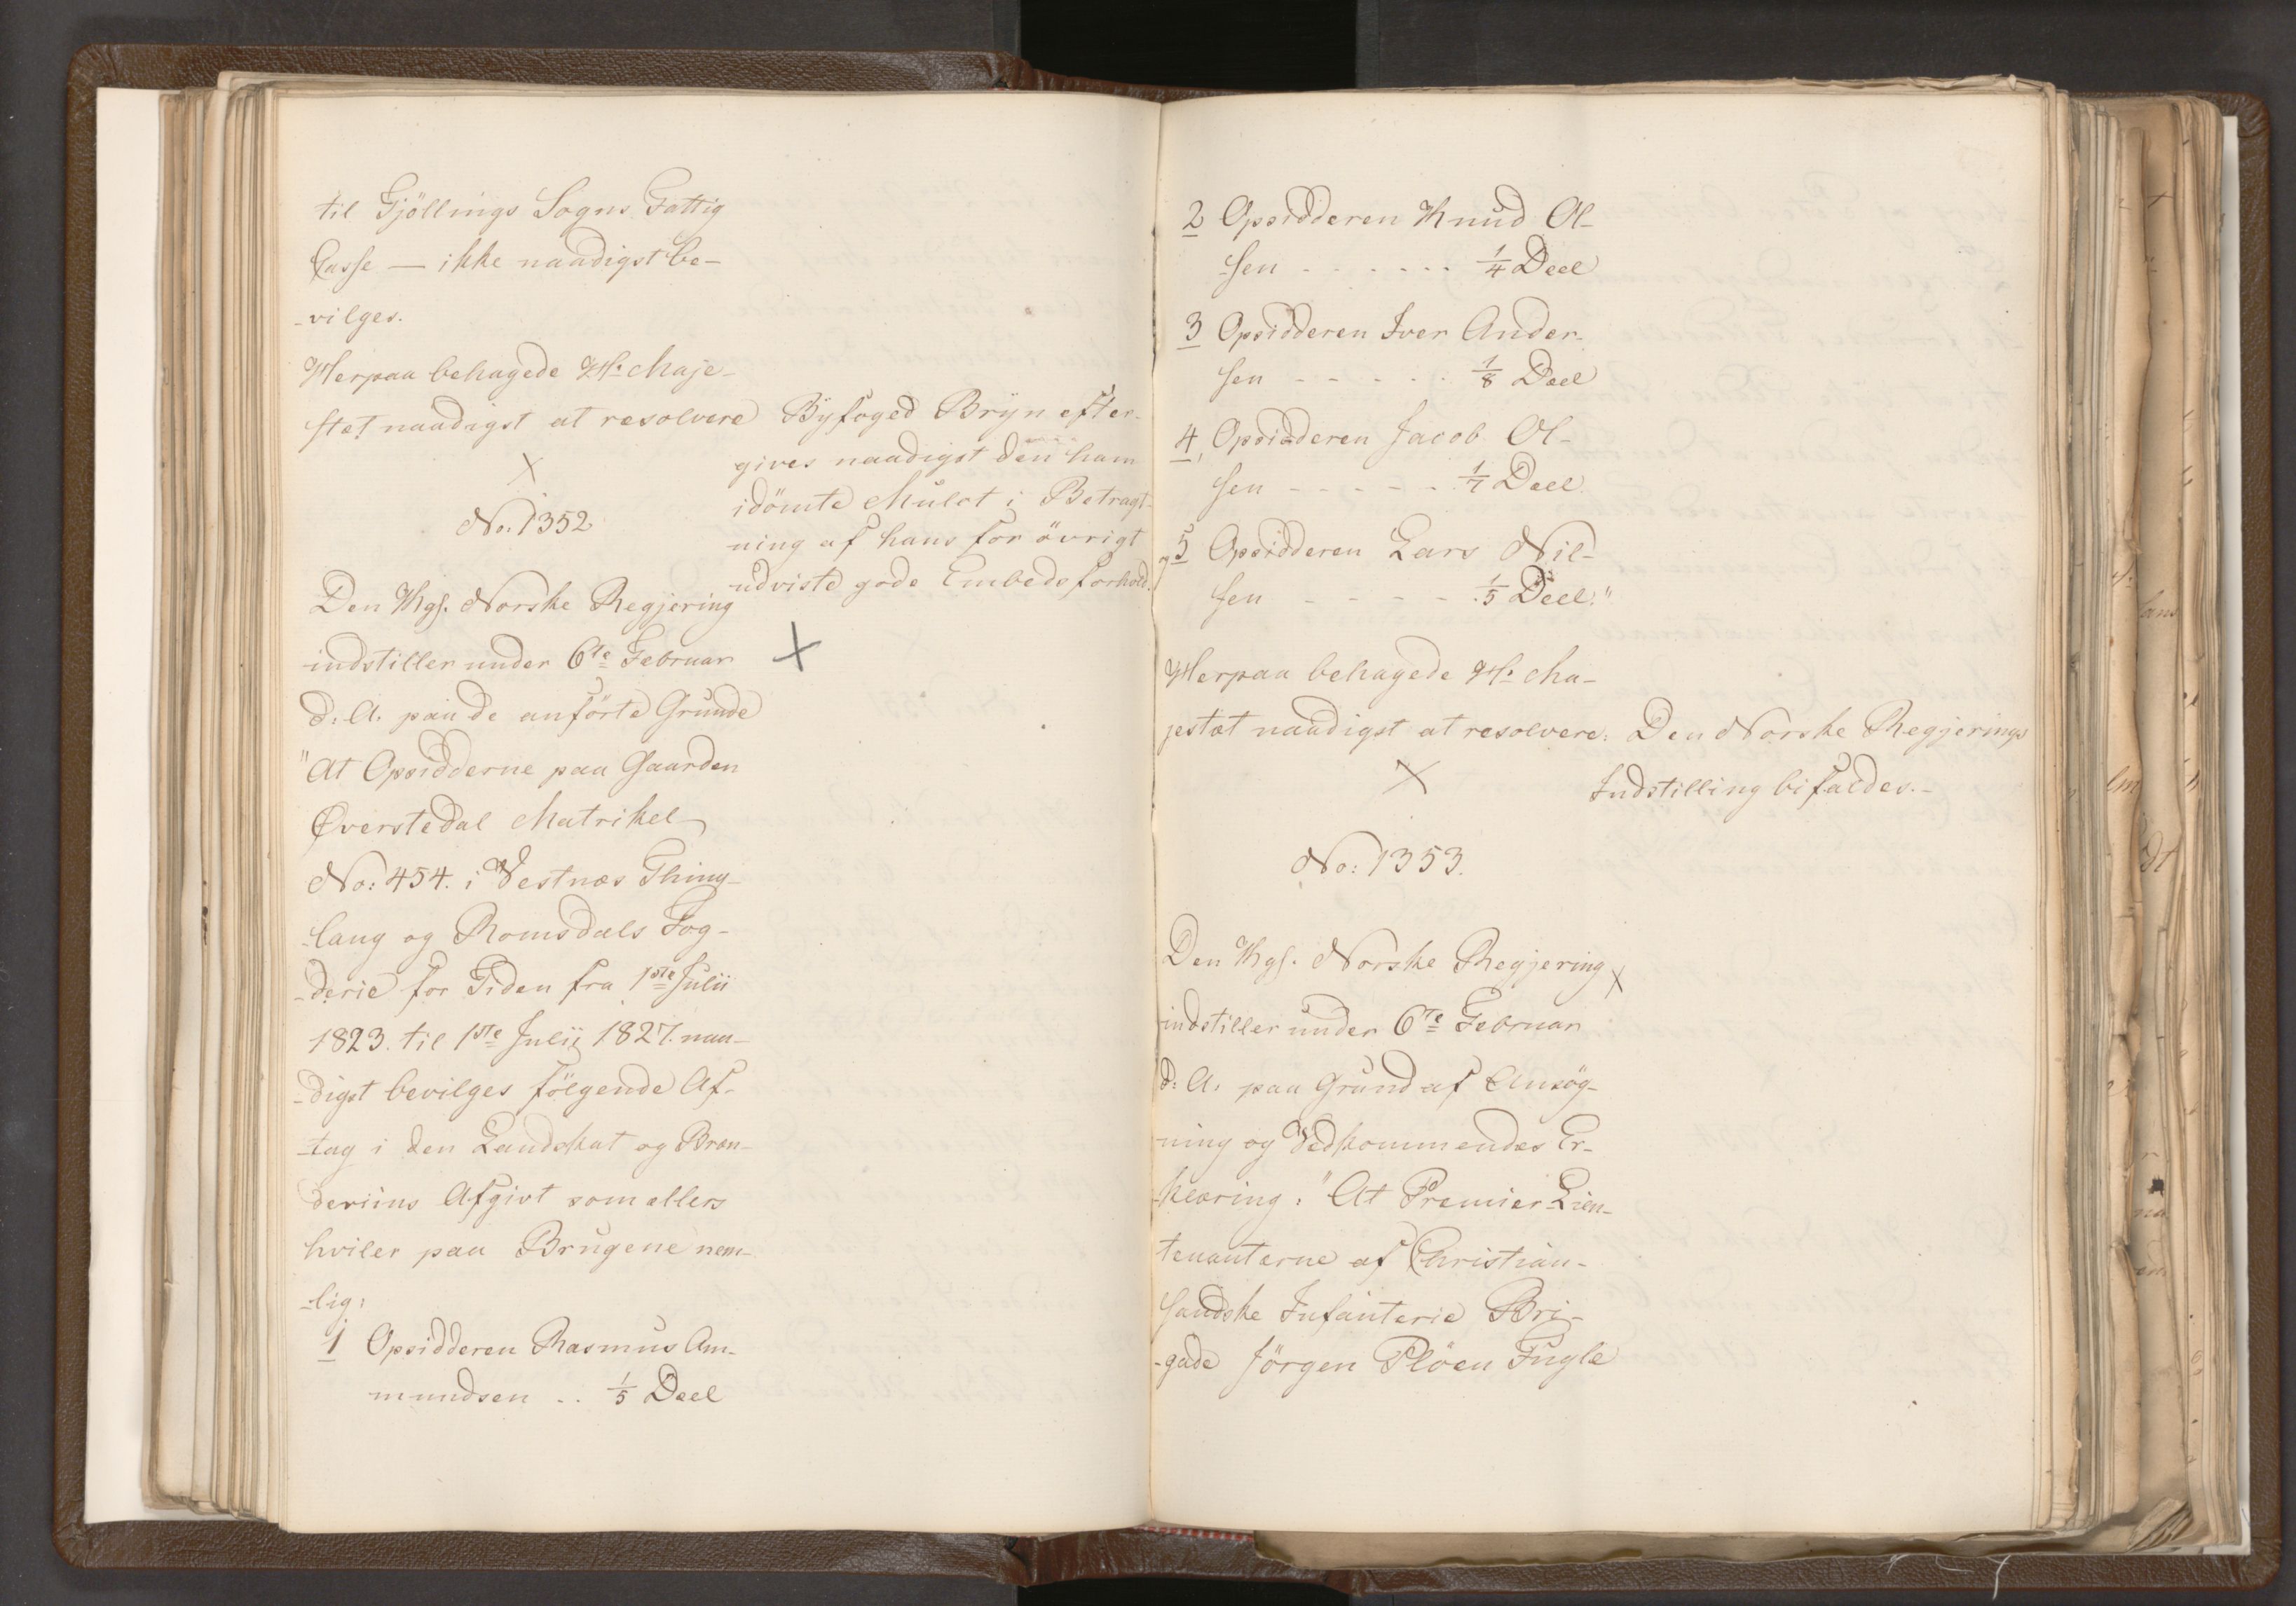 til Gjöllings Sogns Fattig
Casse — ikke naadigst be-
-vilges.
Herpaa behagede H: Maje-
stet naadigst at resolvere
Byfoged Bryn efter-
gives naadigst den ham
idömte Mulct i Betragt-
ning af hans for övrigt
udviste gode Embedsforhold.
No: 1352
Den Kgs. Norske Regjering
indstiller under 6te Februar
d: A. paa de anförte Grunde
"At Opsidderne paa Gaarden
Øverstedal Matrikel
No: 454. i Vestnæs Thing-
-laug og Romsdals Fog-
-derie for Tiden fra 1ste Julii
1823. til 1ste Julii 1827. naa-
-digst bevilges fölgende Af-
-tag i den Landskat og Bræn-
deviins Afgivt som ellers
hviler paa Brugene nem-
-lig:
1 Opsidderen Rasmus Am-
mundsen .. 1/5 Deel
2 Opsidderen Knud Ol-
sen - - - - - - 1/4 Deel
3 Opsidderen Iver Ander-
sen - - - - - 1/8 Deel
4, Opsidderen Jacob Ol-
sen - - - - - 1/7 Deel
og 5 Opsidderen Lars Nil-
sen - - - - - 1/5 Deel."
Herpaa behagede H: Ma-
jestæt naadigst at resolvere:
Den Norske Regjerings
Indstilling bifaldes.-
No: 1353.
Den Kgs. Norske Regjering
indstiller under 6te Februar
d: A. paa Grund af Ansög-
ning og Vedkommendes Er-
klæring: "At Premier-Lieu-
tenanterne af Christian-
sandske Infanterie Bri-
-gade Jörgen Plöen Fugle